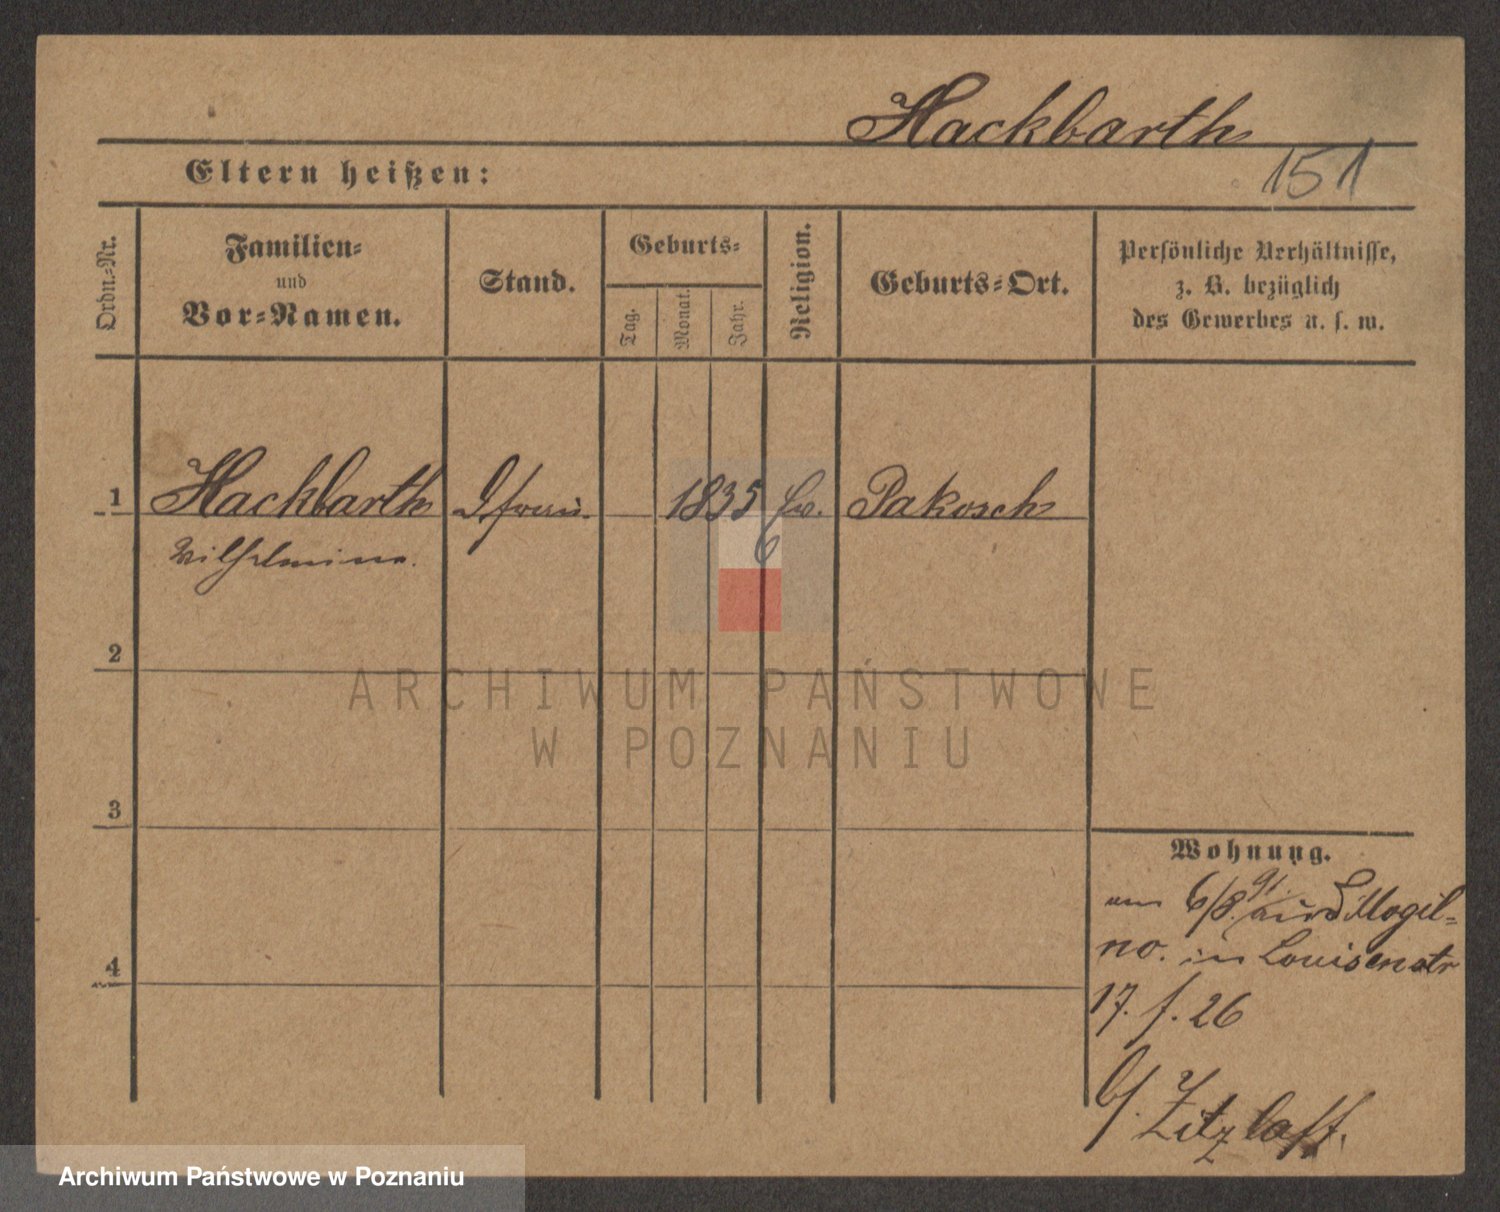 Hackbarth
151
Eltern heißen:
Ordn.-Nr.
Familien-
und
Vor-Namen.
Stand.
Geburts-
Tag.
Monat.
Jahr.
Religion.
Geburts-Ort.
Persönliche Verhältnisse,
z. B. bezüglich
des Gewerbes u. s. w.
1 Hackbarth 1835 Ev. Pakosch
6
Wilhelmine.
2
ARCHIWUM PAŃSTWOWE
W POZNANIU
3
4
Wohnung.
am 6/8. 91. aus Mogil-
no. in Louisenstr
17. f. 26
b/. Zitzlaff.
Archiwum Państwowe w Poznaniu